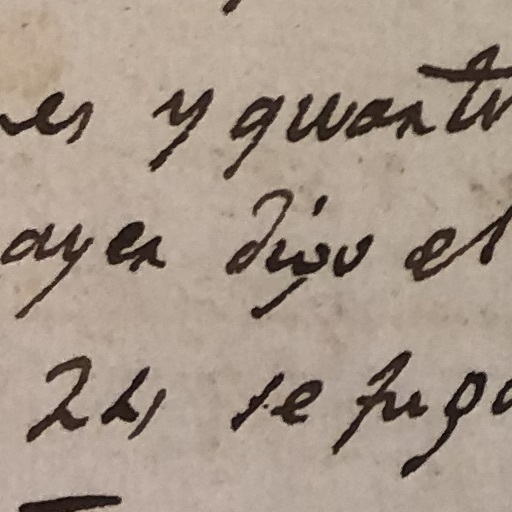 es y quanto
ayer dijo el
24 se fugo